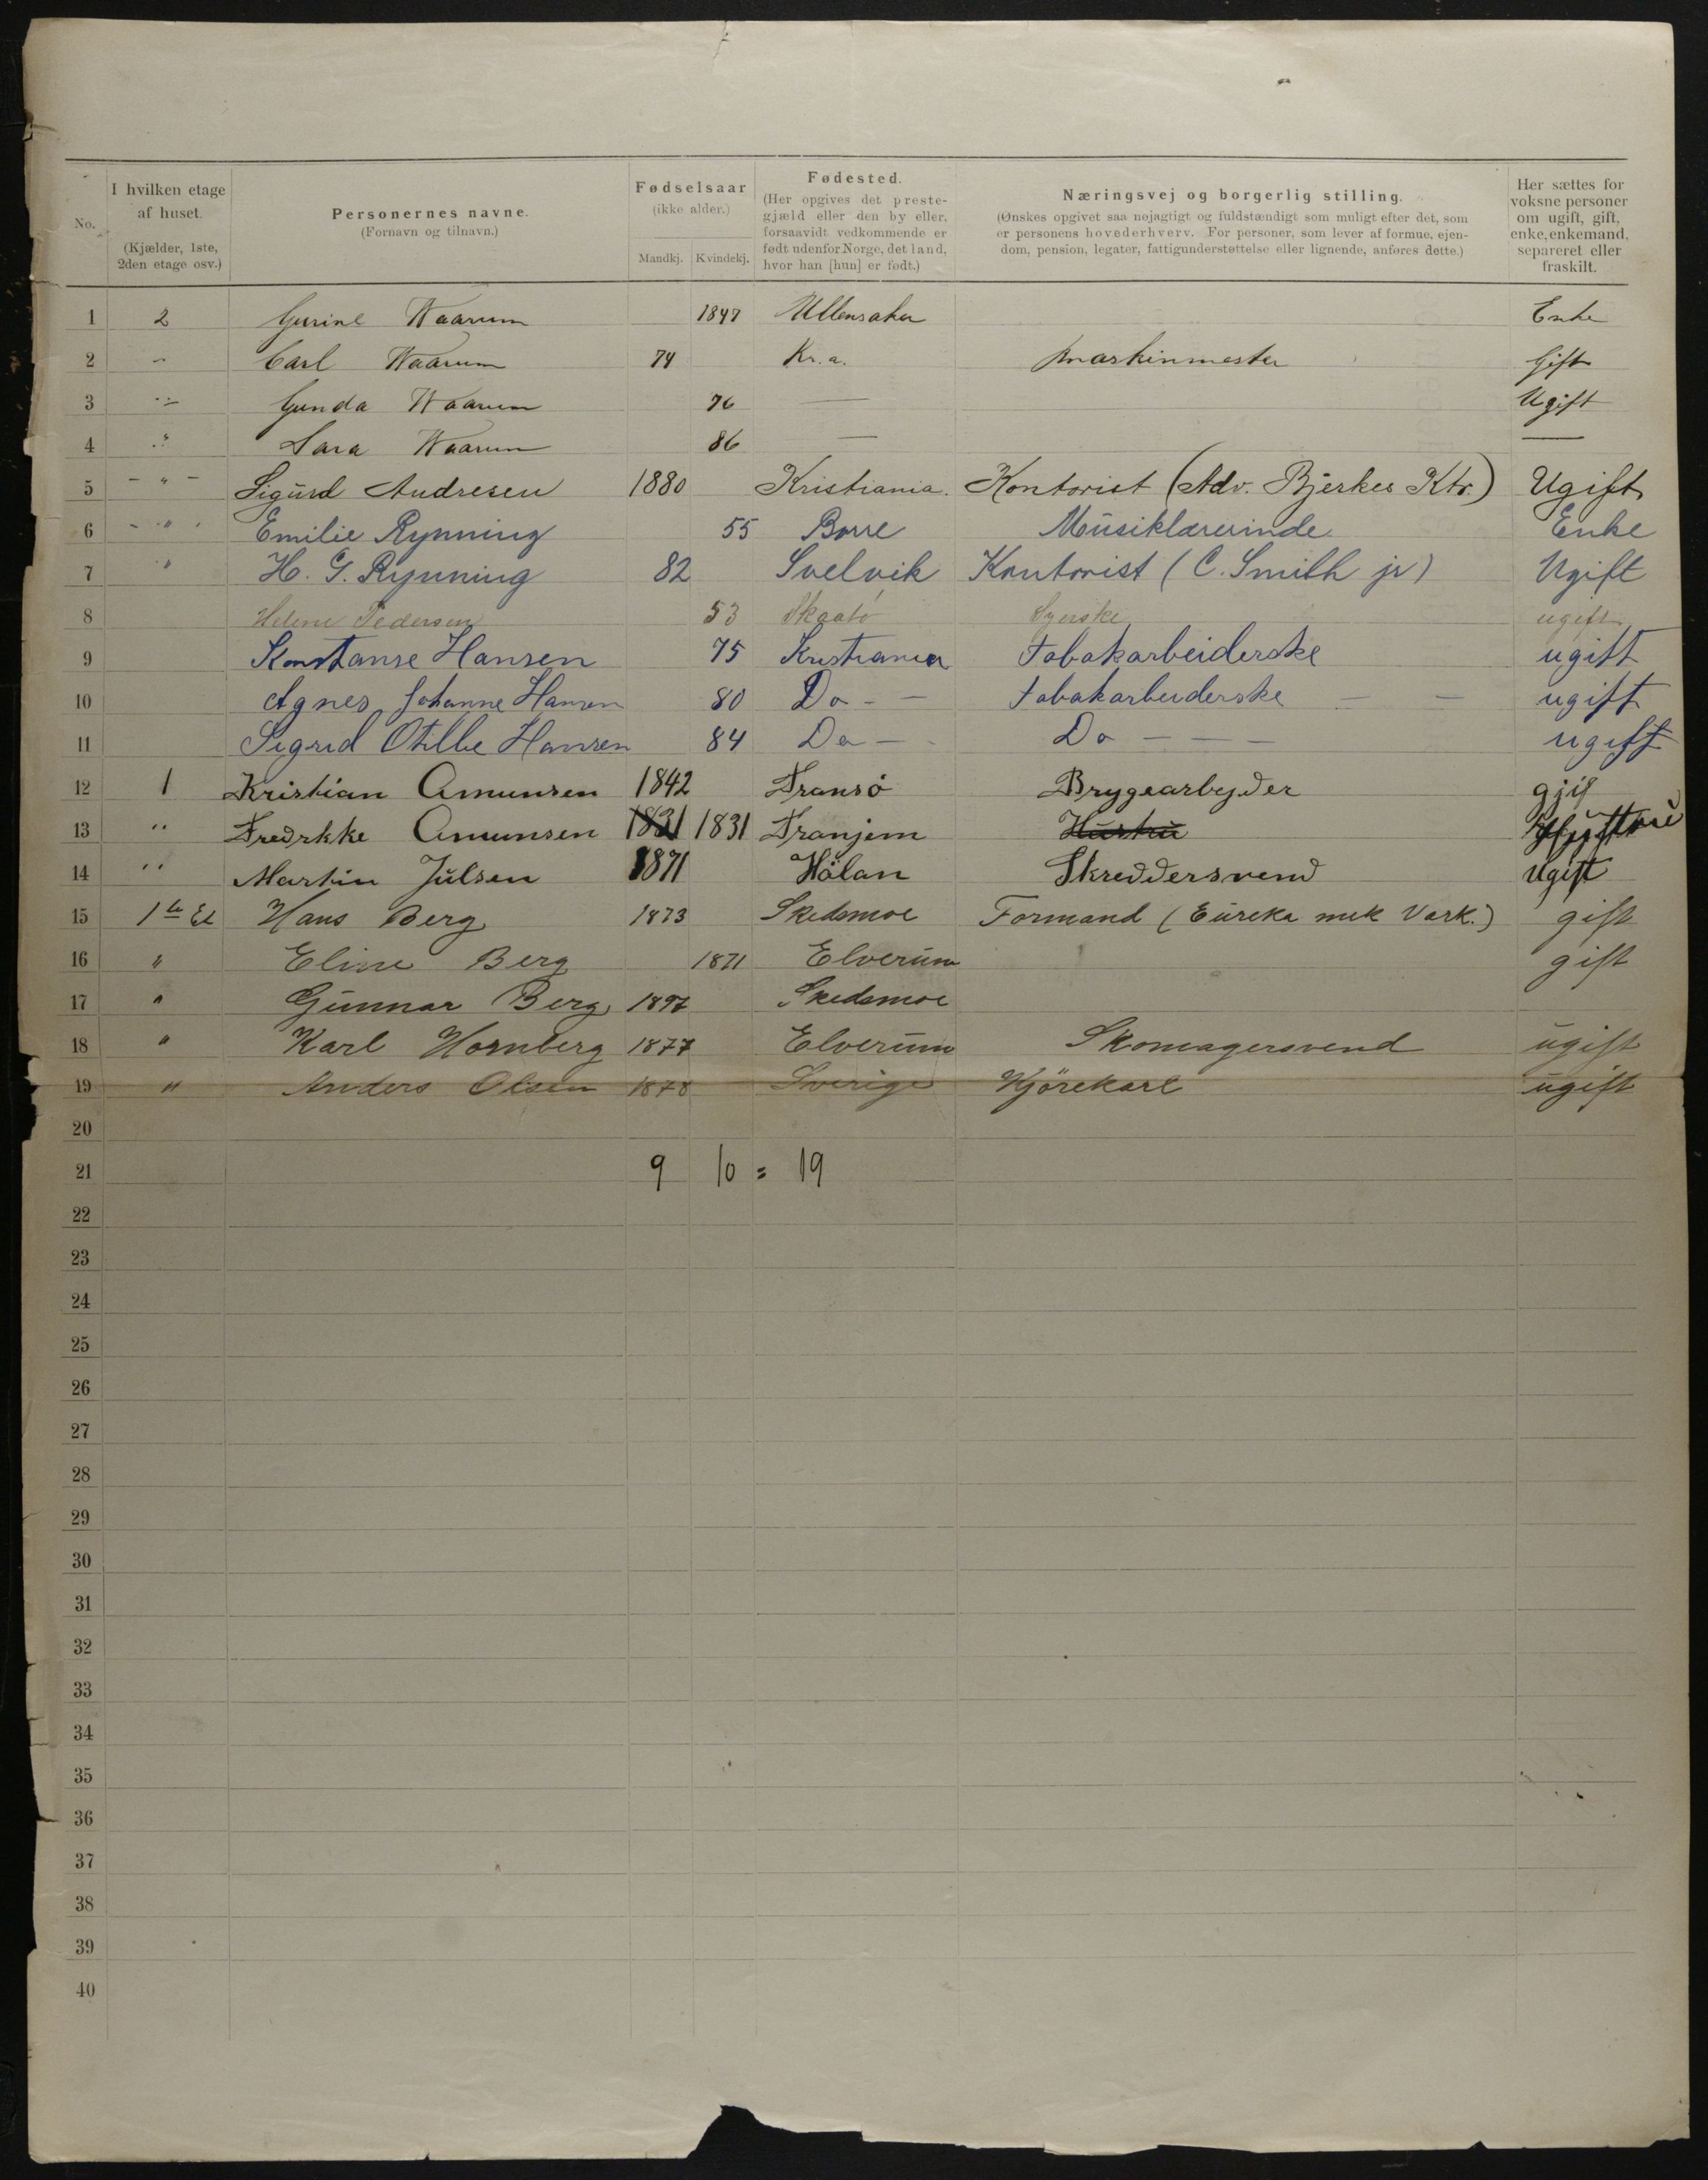 No.
I hvilken etage af huset. (Kjælder, 1ste, 2den etage osv.)
Personernes navne. (Fornavn og tilnavn.)
Fødselsaar (ikke alder.) Mandkj. Kvindekj.
Fødested. (Her opgives det prestegjæld eller den by eller, forsaavidt vedkommende er født udenfor Norge, det land, hvor han [hun] er født.)
Næringsvej og borgerlig stilling. (Ønskes opgivet saa nøjagtigt og fuldstændigt som muligt efter det, som er personens hovederhverv. For personer, som lever af formue, ejendom, pension, legater, fattigunderstøttelse eller lignende, anføres dette.)
Her sættes for voksne personer om ugift, gift, enke, enkemand, separeret eller fraskilt.
1 2 Gurine Waarum 1847 Ullensaker Enke
2 " Carl Waarum 74 Kr.a. Maskinmester Gift
3 " Gunda Waarum 76 — Ugift
4 " Sara Waarum 86 — —
5 - " - Sigurd Andresen 1880 Kristiania. Kontorist (Adv. Bjerkes Ktr.) Ugift
6 - " - Emilie Rynning 55 Borre Musiklærerinde Enke
7 " H. G. Rynning 82 Svelvik Kontorist (C. Smith jr) Ugift
8 Helene Pedersen 53 Skaatö Syerske ugift
9 Konstanse Hansen 75 Kristiania Tobakarbeiderske ugift
10 Agnes Johanne Hansen 80 Do - — Tobakarbeiderske — — ugift
11 Sigrid Otilie Hansen 84 Do — - Do — — — ugift
12 1 Kristian Amunsen 1842 Transö Brygearbejder gjif
13 " Fredrkke Amunsen 1831 1831 Tranjem Hustru
14 " Martin Julsen 1871 Hölan Skreddersvend Ugift
15 1ste Et Hans Berg 1873 Skedsmoe Formand (Eureka mek Værk.) gift
16 " Eline Berg 1871 Elverum gift
17 " Gunnar Berg 1897 Skedsmoe
18 " Karl Hornberg 1877 Elverum Skomagersvend ugift
19 " Anders Olsen 1878 Sverige Kjörekarl ugift
20
21 9 10 = 19
22
23
24
25
26
27
28
29
30
31
32
33
34
35
36
37
38
39
40